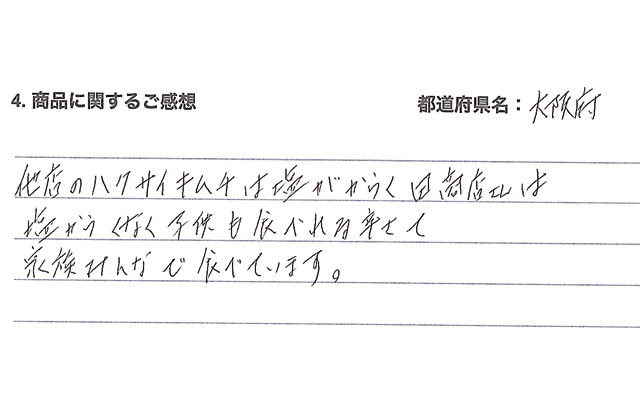 4. 商品に関するご感想
都道府県名：大阪府
他店のハクサイキムチは塩がからく田商店は
塩からくなく子供も食べれる辛さで
家族みんなで食べています。